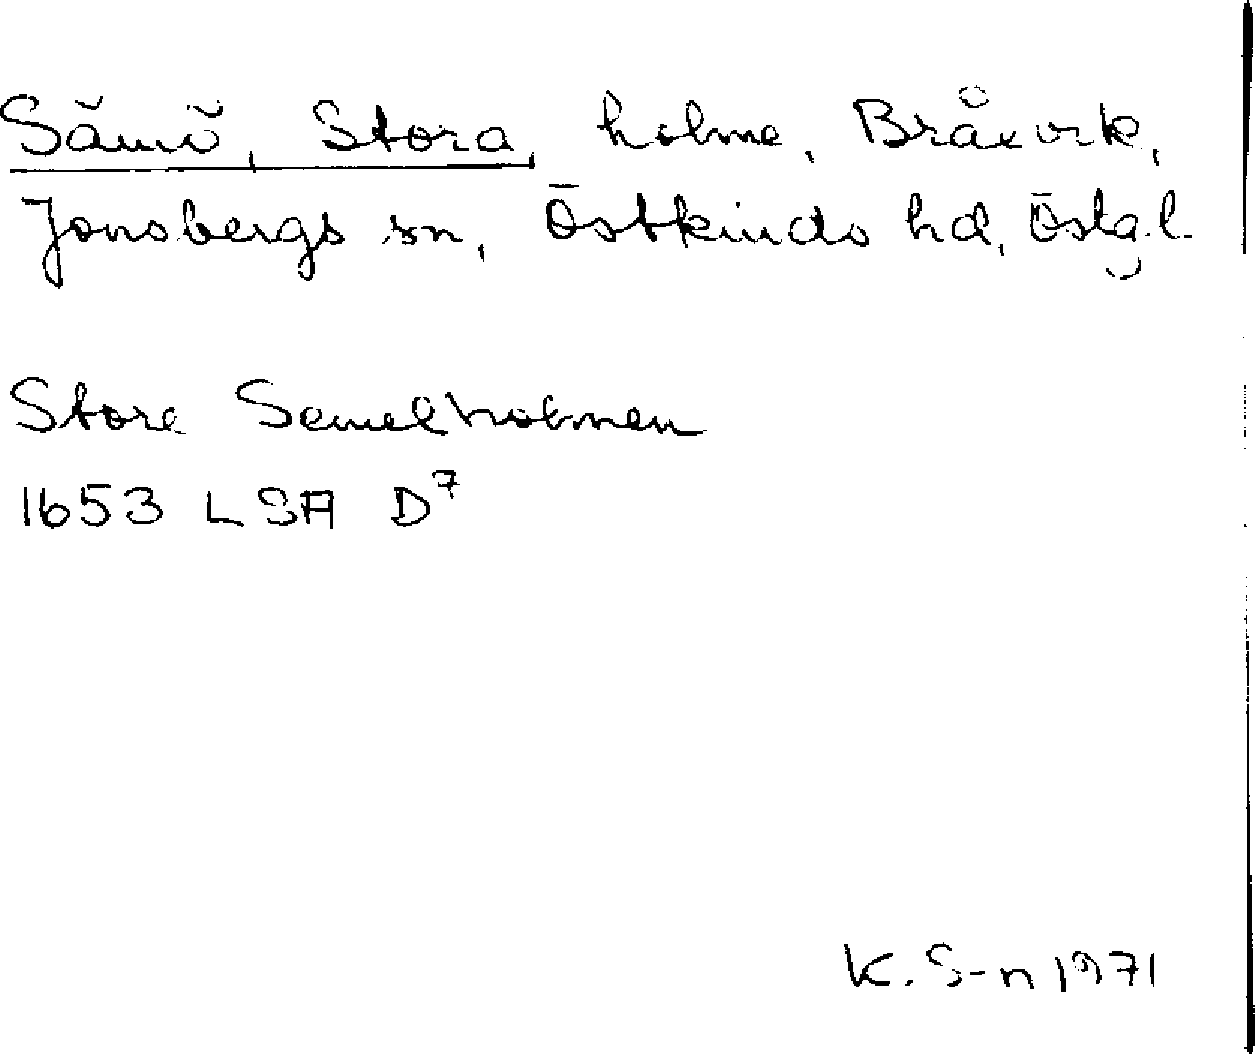 Sämö, Stora, holme, Bråxvik,
Jonsbergs sn, Östkinds hd, Östg.l.
Store Semelholmen
1653 LSA D7
K. S-n 1971